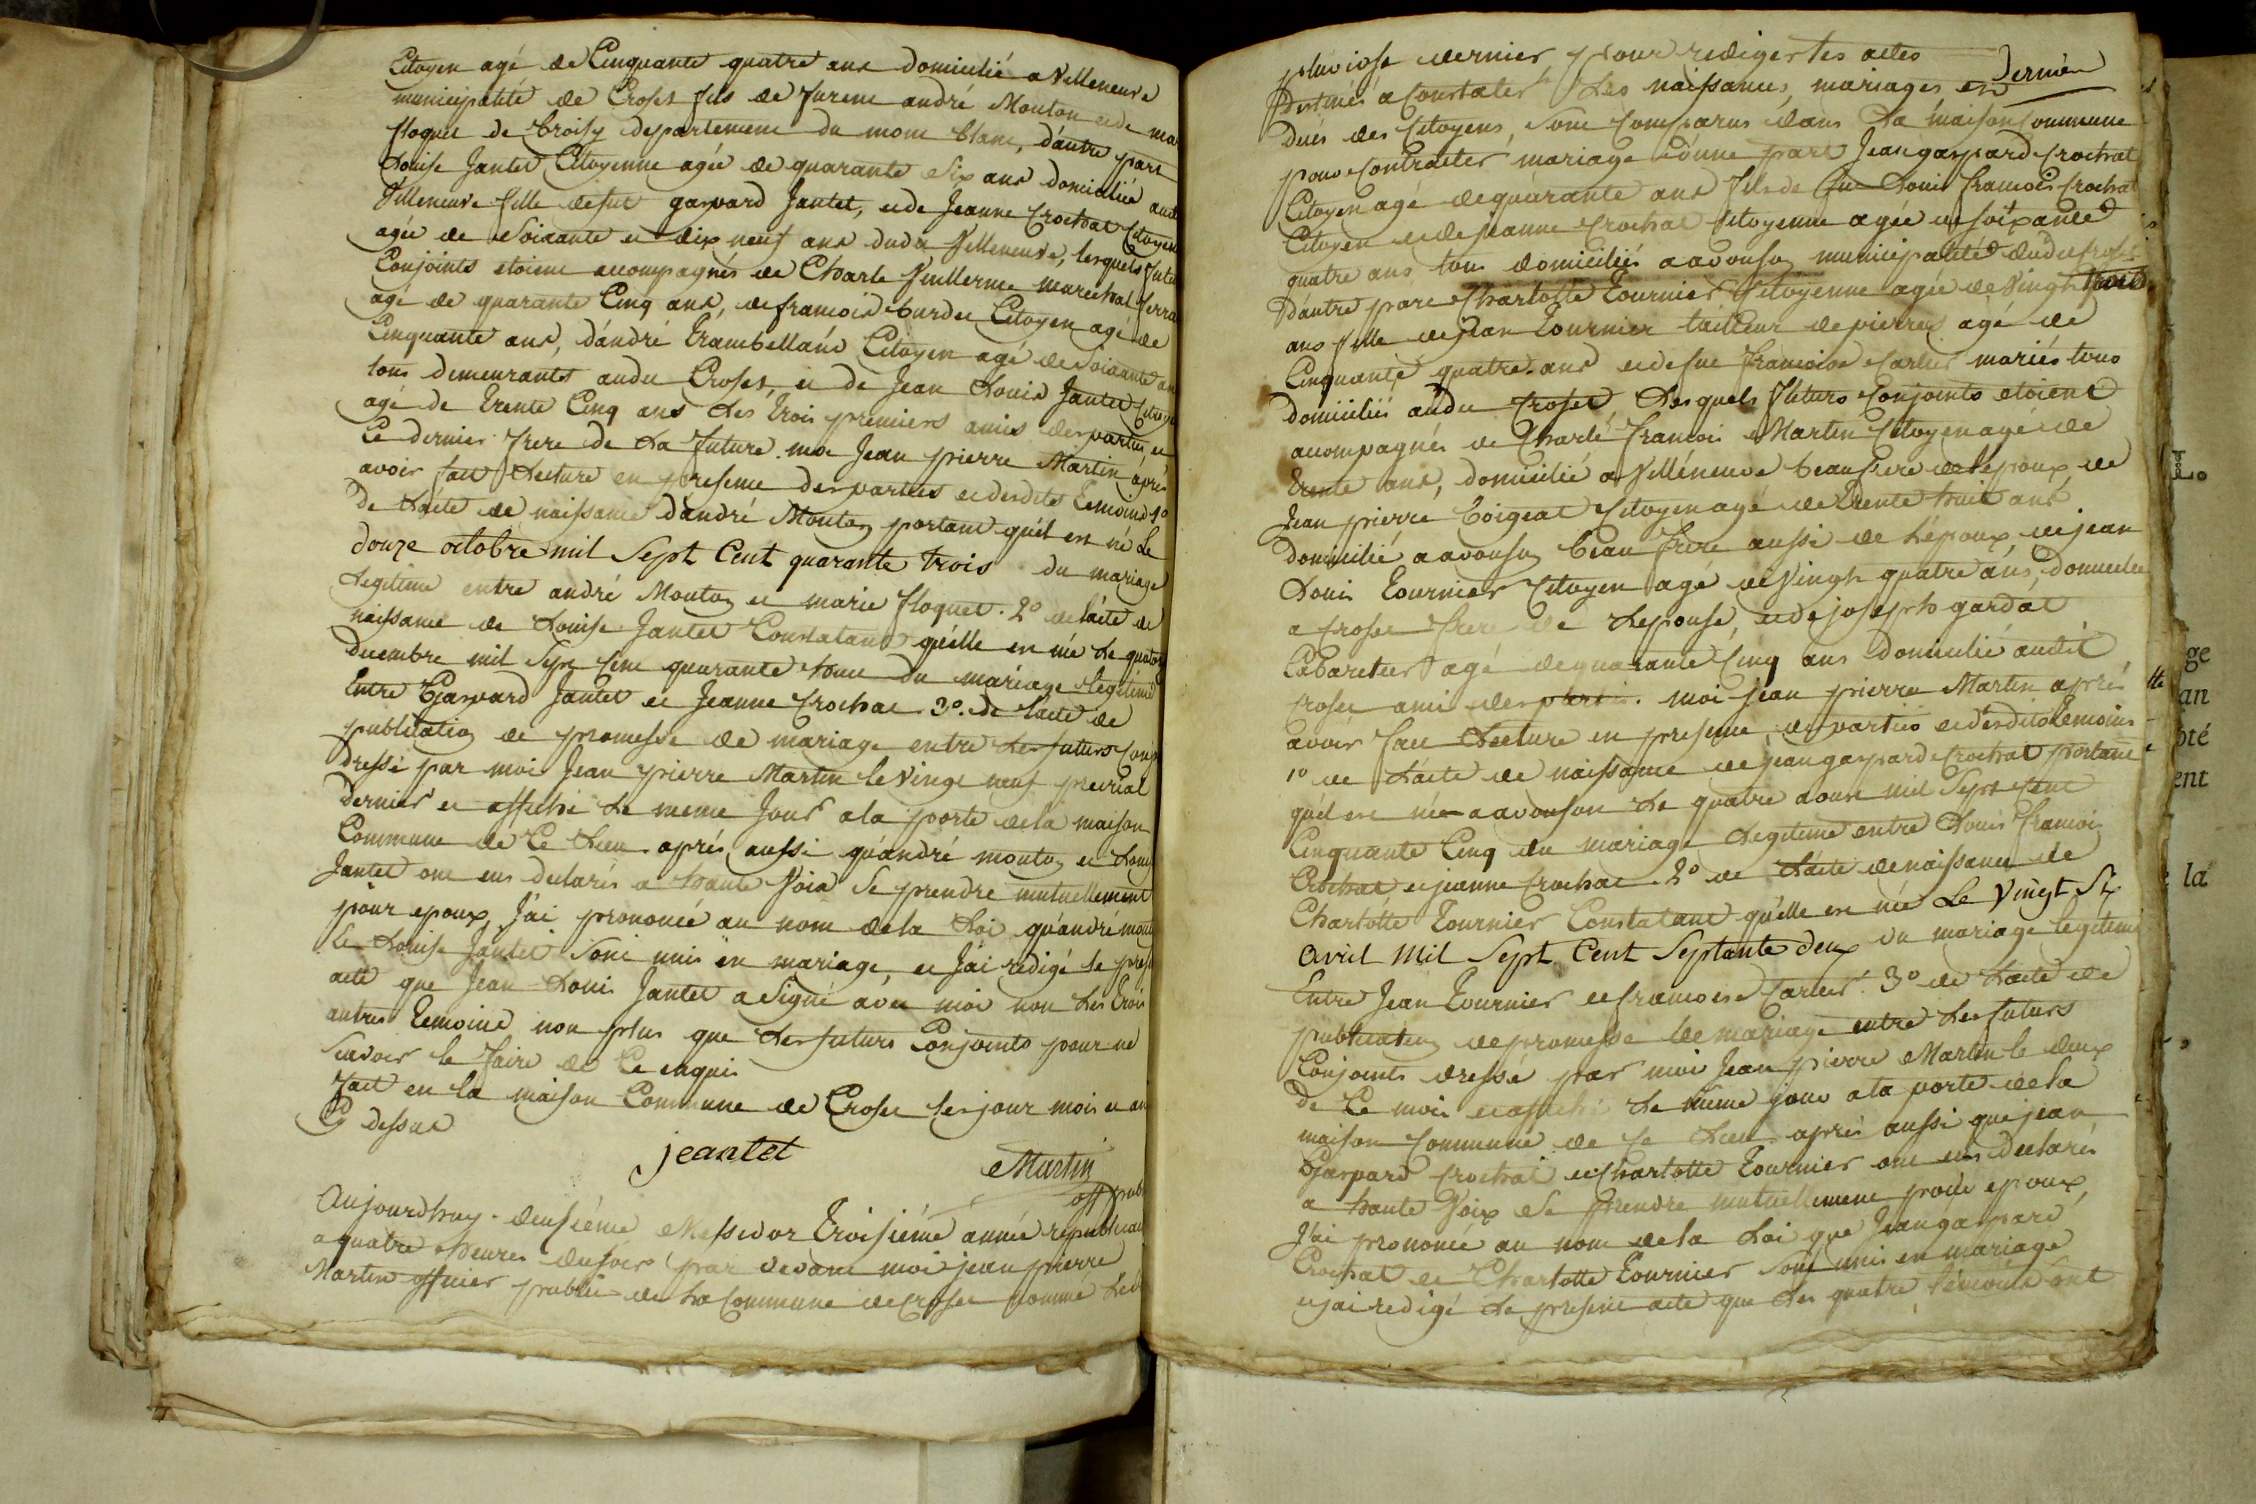 Citoyen agé de Cinquante quatre ans domicilié a Villeneuve
municipalité de Croset fils de furent andré Mouton et de mar
floquet de broisy departement du mont blanc, d'autre part
Louise Jantet Citoyenne agée de quarante six ans domiciliée aud
Villeneuve fille defut gaspard Jantet, et de Jeanne Crochat Citoyen
agée de soixante et dix neuf ans dudit Villeneuve, lesquels futu
Conjoints etoient accompagnés de Charle Vuillerme marechal ferra
agé de quarante Cinq ans, de francois burdet Citoyen agé de
Cinquante ans, d'andré trambelland Citoyen agé de soixante an
tous demeurants audit Croset, et de Jean Louis Jantet Citoye
agé de trente Cinq ans les trois premiers amis des parties et
le dernier frere de la future. moi Jean pierre Martin après
avoir fait Lecture en presence des parties et desdits temoins 1º
de L'acte de naissance d'andré Mouton portant qu'il est né le
douze octobre mil Sept Cent quarante trois du mariage
Legitime entre andré Mouton et marie floquet. 2º de l'acte de
naissance de Louise Jantet Constatant qu'elle est née le quatorz
decembre mil Sept Cent quarante huit du mariage legitime
Entre Gaspard Jantet et Jeanne Crochat. 3º. de l'acte de
publication de promesse de mariage entre les futurs Conj
dressé par moi Jean pierre Martin le vingt neuf preirial
dernier et affiché le meme Jour a la porte de la maison
Commune de Ce Lieu. aprés aussi qu'andré mouton et Loui
Jantet ont eus declarés a haute Voix Se prendre mutuellement
pour epoux, J'ai prononcé au nom de la Loi qu'andré mout
Et Louise Jantet Sont unis en mariage, et J'ai redigé le pres
acte que Jean Louis Jantet a Signé avec moi non les trois
autres temoins non plus que les futurs Conjoints pour ne
Scavoir le faire de Ce enquis
Fait en la maison Commune de Croset les jour mois et an
Cy dessus
jeantet
Martin
off publ
Aujourdhuy deusiéme Messidor troisiéme année republicai
a quatre heures du soir par devant moi jean pierre
Martin officier public de la Commune de Croset nommé Le
pluviose dernier, pour rediger les actes
dernier
destinés a Constater les naissances, mariages et
Decès des Citoyens, sont Comparus dans La maison Commune
pour Contracter mariage d'une part Jean gaspard Crochat
Citoyen agé de quarante ans fils de fut Louis francois Crochat
Citoyen et de jeanne Crochat Citoyenne agée de soixante
quatre ans tous domiciliés a avouson municipalité dudit Croset
D'autre part Charlotte Tournier Citoyenne agée de Vingt trois
ans fille de jean Tournier tailleur de pierres agé de
Cinquante quatre ans et de fut francoise Carlier mariés tous
domiciliés audit Croset Lesquels futurs Conjoints etoient
accompagnés de Charle francois Martin Citoyen agé de
trente ans, domicilié a Villeneuve beau frere de l'epoux de
Jean pierre boigeat Citoyen agé de trente huit ans
domicilié a avouson beau frere aussi de L'epoux de jean
Louis Tournier Citoyen agé de Vingt quatre ans, domicilié
a Croset frere de Lepouse, et de joseph gardat
Cabaretier agé de quarante Cinq ans domicilié audit
Croset ami des parties. moi jean pierre Martin aprés
avoir fait Lecture en presence des parties et desdits temoins
1º de L'acte de naissance de jean gaspard Crochat portant
qu'il est né a avouson Le quatre aoust mil Sept Cent
Cinquante Cinq du mariage Legitime entre Louis francois
Crochat et jeanne Crochat. 2º de L'acte de naissance de
Charlotte Tournier Constatant qu'elle est née Le Vingt Six
Avril Mil Sept Cent Septante deux du mariage legitime
Entre Jean Tournier et francoise Carlier. 3º de L'acte de
publication de promesse de mariage entre les futurs
Conjoints dressé par moi Jean pierre Martin le deux
de Ce mois et affiché le même jour a la porte de la
maison Commune de Ce Lieu. aprés aussi que jean
Gaspard Crochat et Charlotte Tournier ont eus declarés
a haute Voix de Se prendre mutuellement pour epoux,
J'ai prononcé au nom de la Loi que Jean gaspard
Crochat et Charlotte Tournier Sont unis en mariage
et jai redigé Le present acte que les quatre temoins ont